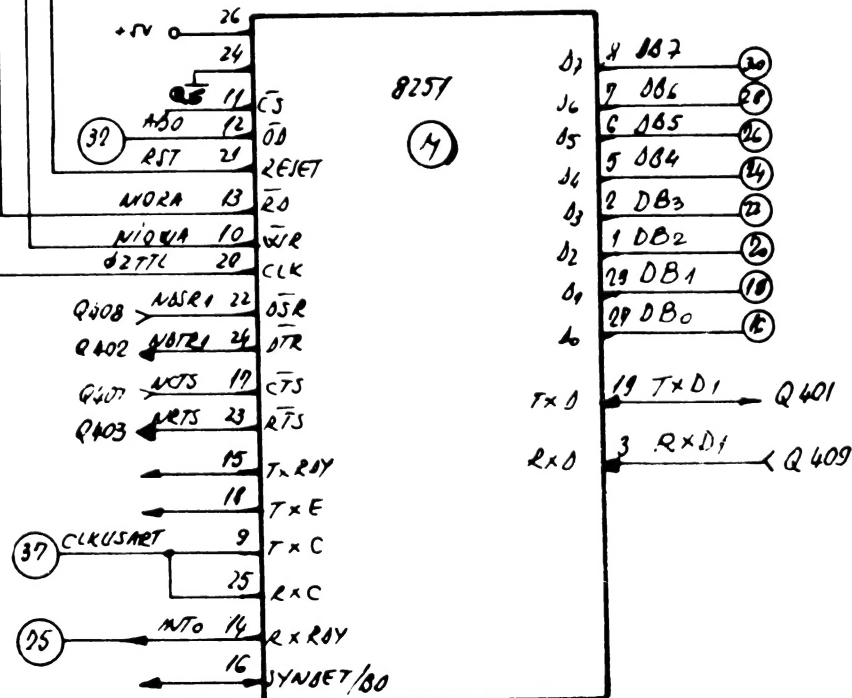 26
+5V
24
11 C̅S̅
32 AB0 12 C̅D̅
RST 21 RESET
NIORA 13 R̅D̅
NIOWA 10 W̅R̅
Ø2TTL 20 CLK
Q408 NDSR1 22 D̅S̅R̅
Q402 NDTR1 24 D̅T̅R̅
Q407 NCTS 17 C̅T̅S̅
Q403 NRTS 23 R̅T̅S̅
15 TxRDY
18 TxE
37 CLKUSART 9 TxC
25 RxC
14 RxRDY
16 SYNDET/BD
8251
D7 8 DB7 30
D6 7 DB6 28
D5 6 DB5 26
D4 5 DB4 24
D3 2 DB3 22
D2 1 DB2 20
D1 28 DB1 18
D0 27 DB0 16
TxD 19 TxD1 Q401
RxD 3 RxD1 Q409